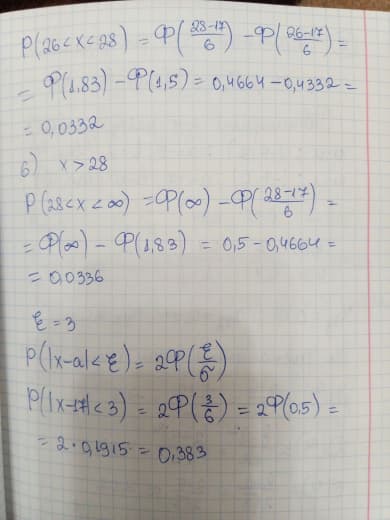 P(26<x<28) = Ф(28-17/6) - Ф(26-17/6) =
= Ф(1,83) - Ф(1,5) = 0,4664 - 0,4332 =
= 0,0332
б) x > 28
P(28<x<∞) = Ф(∞) - Ф(28-17/6) =
= Ф(∞) - Ф(1,83) = 0,5 - 0,4664 =
= 0,0336
ξ = 3
P(|x-a|<ξ) = 2Ф(ξ/σ)
P(|x-17|<3) = 2Ф(3/6) = 2Ф(0,5) =
= 2·0,1915 = 0,383